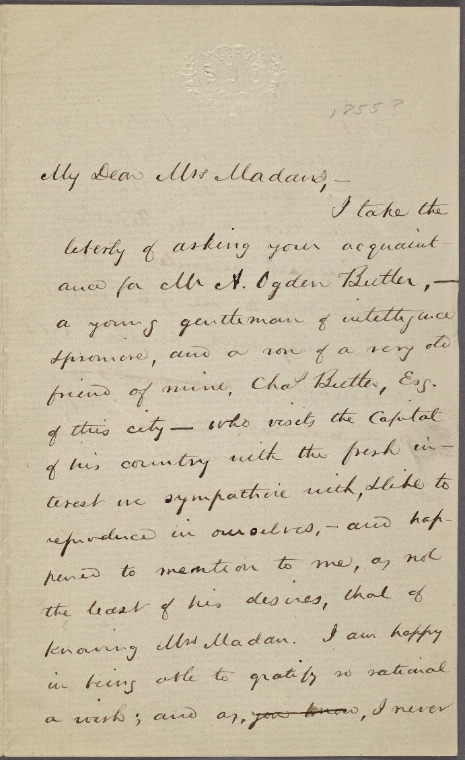 SJT
1855?
My Dear Mrs Madam,—
I take the
liberty of asking your acquaint-
ance for Mr A. Ogden Butler,—
a young gentleman of intelligence
& promise, and a son of a very old
friend of mine, Chas Butler, Esq.
of this city— who visits the Capital
of his country with the fresh in-
terest we sympathise with, & like to
reproduce in ourselves,— and hap-
pened to mention to me, as not
the least of his desires, that of
knowing Mrs Madan. I am happy
in being able to gratify so rational
a wish; and as, you know, I never